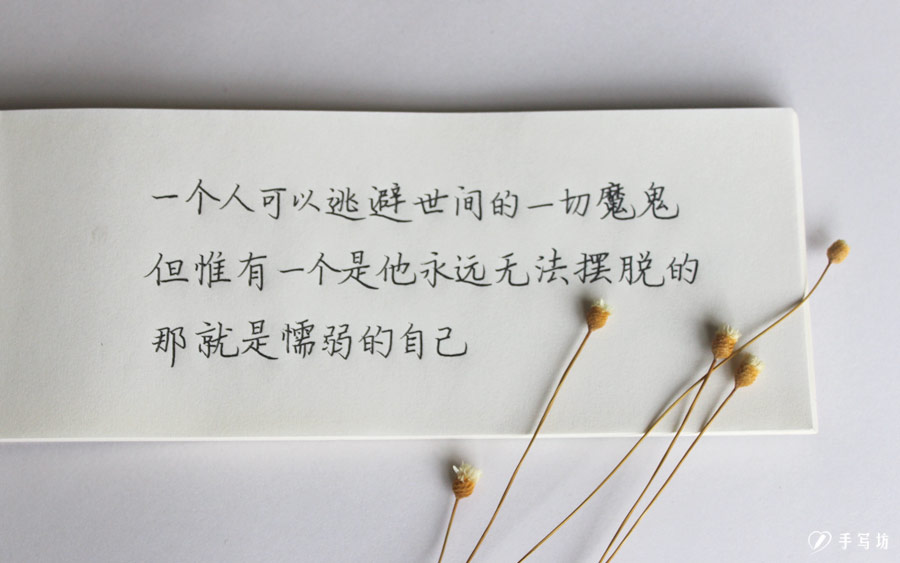 一个人可以逃避世间的一切魔鬼
但惟有一个是他永远无法摆脱的
那就是懦弱的自己
手写坊